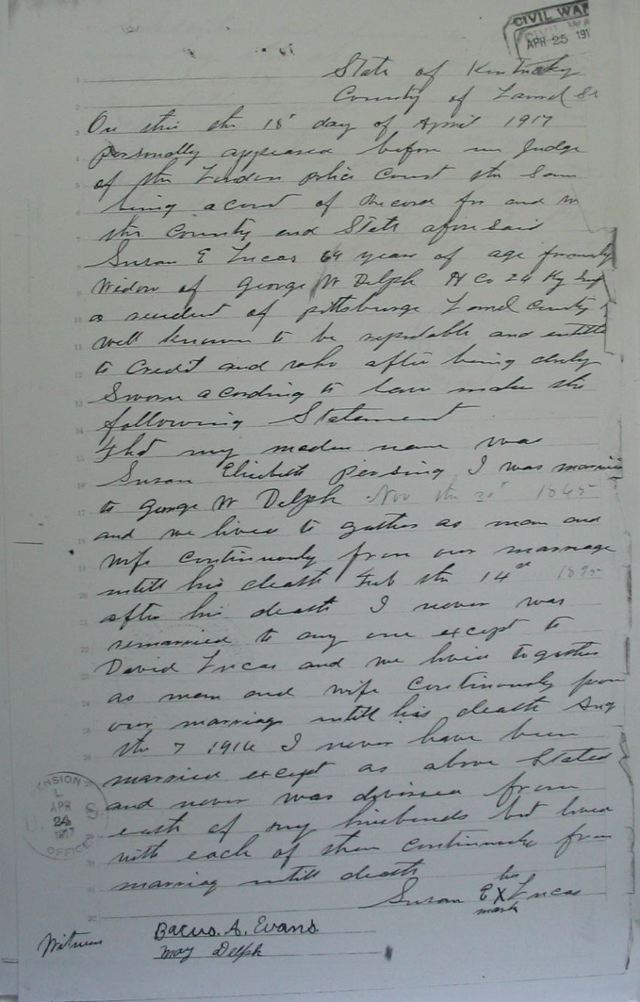 CIVIL WAR
APR 25 191
State of Kentucky
County of Laurel
On this the 18 day of April 1917
personally appeared before me Judge
of the London police Court the Same
being a court of Record for and in
the County and State afore Said
Susan E Lucas 69 years of age formerly
Widow of George W Delph H Co 24 Ky Inf
a resident of pittsburge Laurel County
well known to be reputable and entitle
to Credit and who after being duly
Sworn acording to law makes the
following Statement
that my maden name was
Susan Elizebeth pensing I was married
to George W Delph Nov the 20 1865
and we lived to gather as man and
wife continuously from our marriage
untill his death Feb the 14 1895
after his death I never was
remarried to any one except to
David Lucas and we lived together
as man and wife continuously from
our marriag untill his death Aug
the 7 1914 I never have been
married except as above Stated
and never was divorsed from
each of my husbands but lived
with each of them continuously from
marriag untill death
her
Susan E X Lucas
mark
Witness Bacus. A. Evans.
May Delph
PENSIONS
APR
24
1917
OFFICE